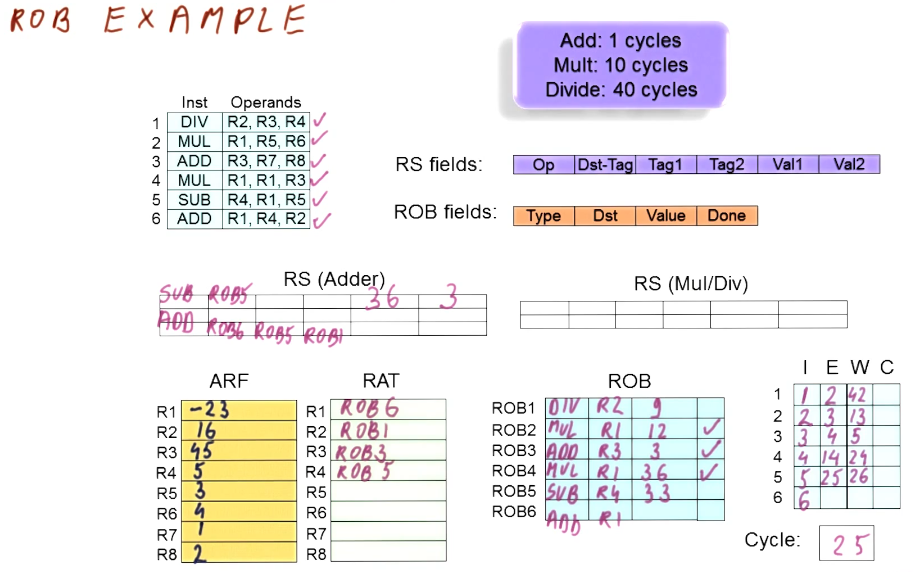 ROB EXAMPLE
Add: 1 cycles
Mult: 10 cycles
Divide: 40 cycles
Inst Operands
1 DIV R2, R3, R4 ✓
2 MUL R1, R5, R6 ✓
3 ADD R3, R7, R8 ✓
4 MUL R1, R1, R3 ✓
5 SUB R4, R1, R5 ✓
6 ADD R1, R4, R2 ✓
RS fields: Op Dst-Tag Tag1 Tag2 Val1 Val2
ROB fields: Type Dst Value Done
RS (Adder)
SUB ROB5 36 3
ADD ROB6 ROB5 ROB1
RS (Mul/Div)
ARF
R1 -23
R2 16
R3 45
R4 5
R5 3
R6 4
R7 1
R8 2
RAT
R1 ROB6
R2 ROB1
R3 ROB3
R4 ROB5
R5
R6
R7
R8
ROB
ROB1 DIV R2 9
ROB2 MUL R1 12 ✓
ROB3 ADD R3 3 ✓
ROB4 MUL R1 36 ✓
ROB5 SUB R4 33
ROB6 ADD R1
I E W C
1 1 2 42
2 2 3 13
3 3 4 5
4 4 14 24
5 5 25 26
6 6
Cycle: 25